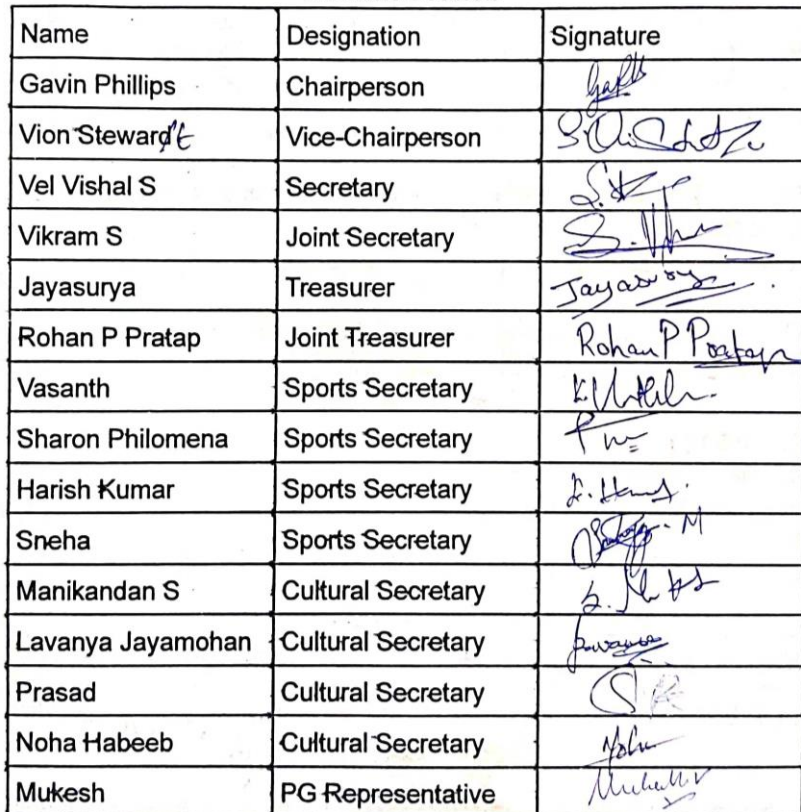 Name Designation Signature
Gavin Phillips Chairperson
Vion Steward't Vice-Chairperson
Vel Vishal S Secretary
Vikram S Joint Secretary
Jayasurya Treasurer Jayasurya
Rohan P Pratap Joint Treasurer Rohan P Pratap
Vasanth Sports Secretary
Sharon Philomena Sports Secretary
Harish Kumar Sports Secretary
Sneha Sports Secretary
Manikandan S Cultural Secretary
Lavanya Jayamohan Cultural Secretary
Prasad Cultural Secretary
Noha Habeeb Cultural Secretary
Mukesh PG Representative